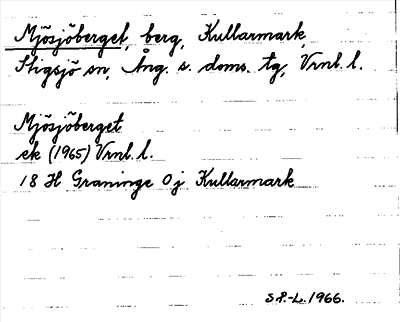 Mjösjöberget, berg, Kullarmark,
Stigsjö sn, Ång. s. doms. tg, Vrnl. l.
Mjösjöberget
ek (1965) Vrnl. l.
18 H Graninge 0 j Kullarmark
S P.-L. 1966.